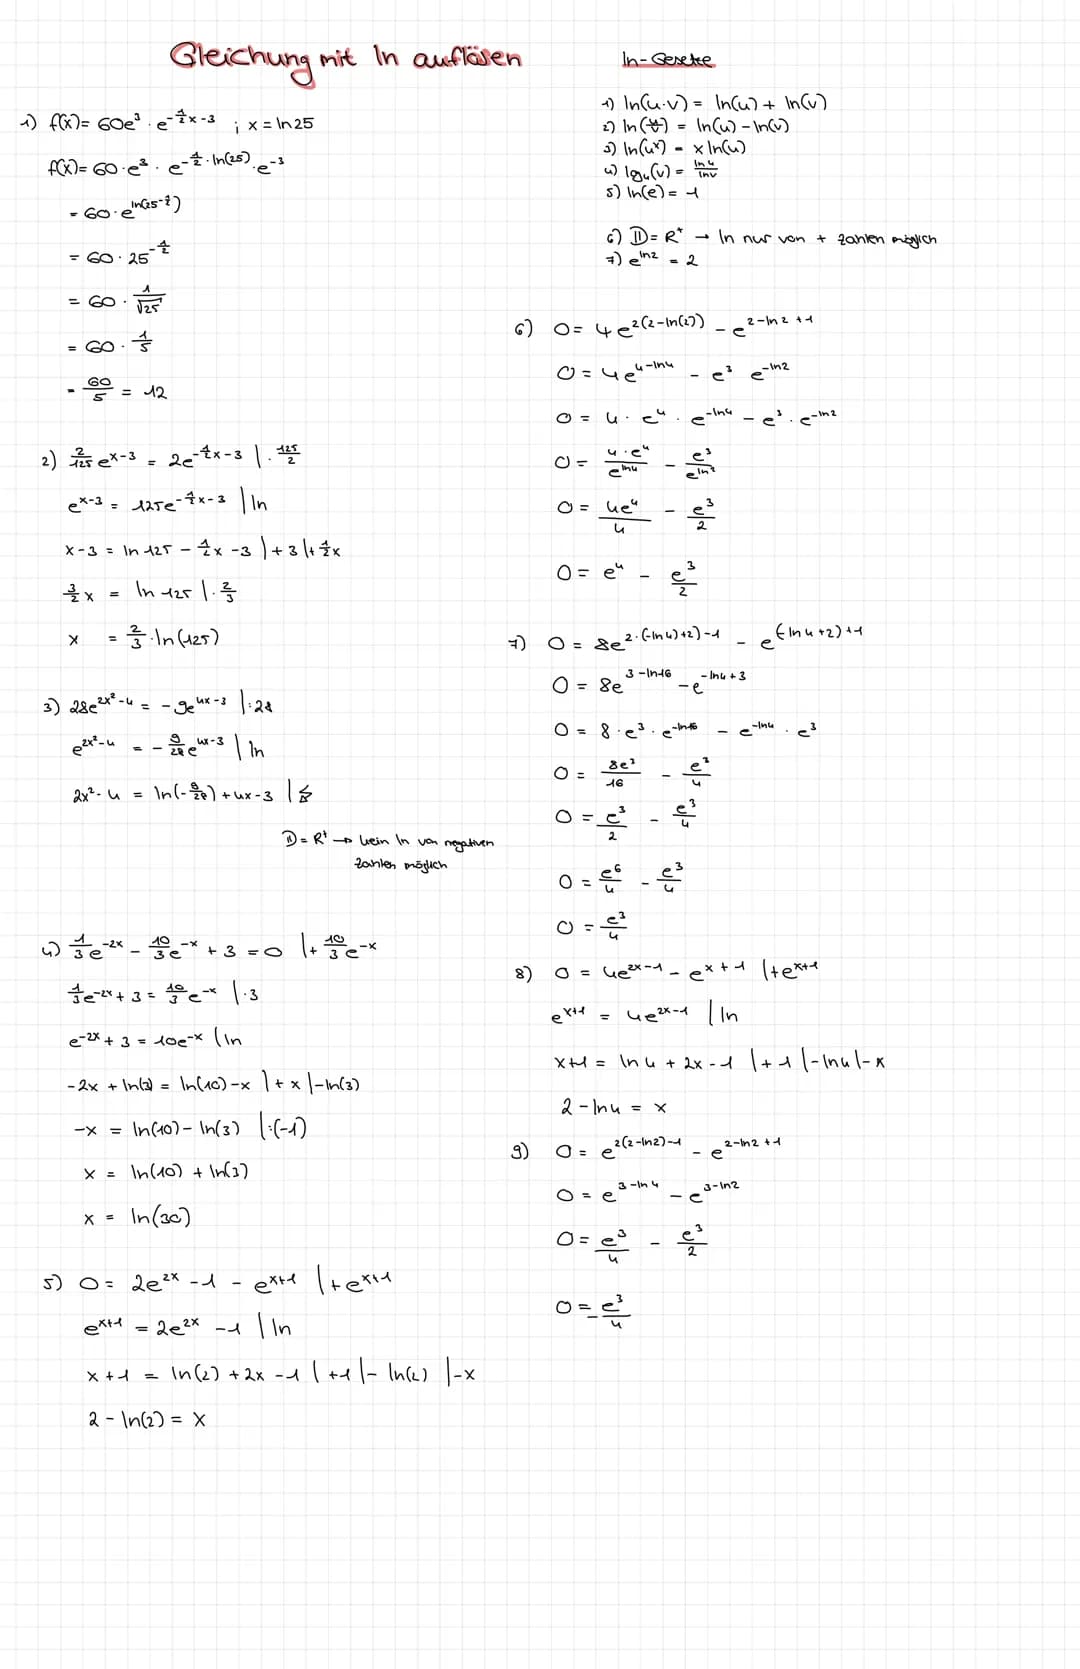 Gleichung mit ln auflösen
1) f(x)= 60e³ · e^(-½x-3) ; x = ln25
f(x)= 60·e³ · e^(-½·ln(25)) · e^(-3)
= 60·e^(ln(25^(-½)))
= 60·25^(-½)
= 60 · 1/√25
= 60 · 1/5
= 60/5 = 12
2) 2/125 e^(x-3) = 2e^(-½x-3) | · 125/2
e^(x-3) = 125e^(-½x-3) | ln
x-3 = ln 125 - ½x -3 | +3 | +½x
3/2 x = ln 125 | · 2/3
x = 2/3 · ln(125)
3) 28e^(2x²-4) = -9e^(4x-3) | :28
e^(2x²-4) = -9/28 e^(4x-3) | ln
2x²-4 = ln(-9/28) + 4x-3 | ↯
𝔻 = R⁺ → kein ln von negativen
Zahlen möglich
4) 1/3 e^(-2x) - 10/3 e^(-x) + 3 = 0 | + 10/3 e^(-x)
1/3 e^(-2x) + 3 = 10/3 e^(-x) | ·3
e^(-2x) + 3 = 10e^(-x) | ln
-2x + ln(3) = ln(10) - x | + x | - ln(3)
-x = ln(10) - ln(3) | :(-1)
x = ln(10) + ln(3)
x = ln(30)
5) 0 = 2e^(2x) -1 - e^(x+1) | + e^(x+1)
e^(x+1) = 2e^(2x) -1 | ln
x+1 = ln(2) + 2x -1 | +1 | - ln(2) | -x
2 - ln(2) = x
ln-Gesetze
1) ln(u·v) = ln(u) + ln(v)
2) ln(u/v) = ln(u) - ln(v)
3) ln(uˣ) = x ln(u)
4) log_u(v) = ln u / ln v
5) ln(e) = 1
6) 𝔻 = R⁺ → ln nur von + Zahlen möglich
7) e^(ln2) = 2
6) 0 = 4e^(2(2-ln(2))) - e^(2-ln2+1)
0 = 4e^(4-ln4) - e³ e^(-ln2)
0 = 4 · e⁴ · e^(-ln4) - e³ · e^(-ln2)
0 = 4·e⁴/e^(ln4) - e³/e^(ln2)
0 = 4e⁴/4 - e³/2
0 = e⁴ - e³/2
7) 0 = 8e^(2·(-ln4)+2)-1) - e^((-ln4+2)+1)
0 = 8e^(3-ln16) - e^(-ln4+3)
0 = 8·e³·e^(-ln16) - e^(-ln4) · e³
0 = 8e³/16 - e³/4
0 = e³/2 - e³/4
0 = e⁶/4 - e³/4
0 = e³/4
8) 0 = 4e^(2x-1) - e^(x+1) | + e^(x+1)
e^(x+1) = 4e^(2x-1) | ln
x+1 = ln 4 + 2x -1 | +1 | -ln4 | -x
2 - ln4 = x
9) 0 = e^(2(2-ln2)-1) - e^(2-ln2+1)
0 = e^(3-ln4) - e^(3-ln2)
0 = e³/4 - e³/2
0 = e³/4